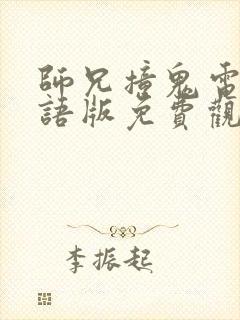 師兄撞鬼電
語版免費觀
李振起